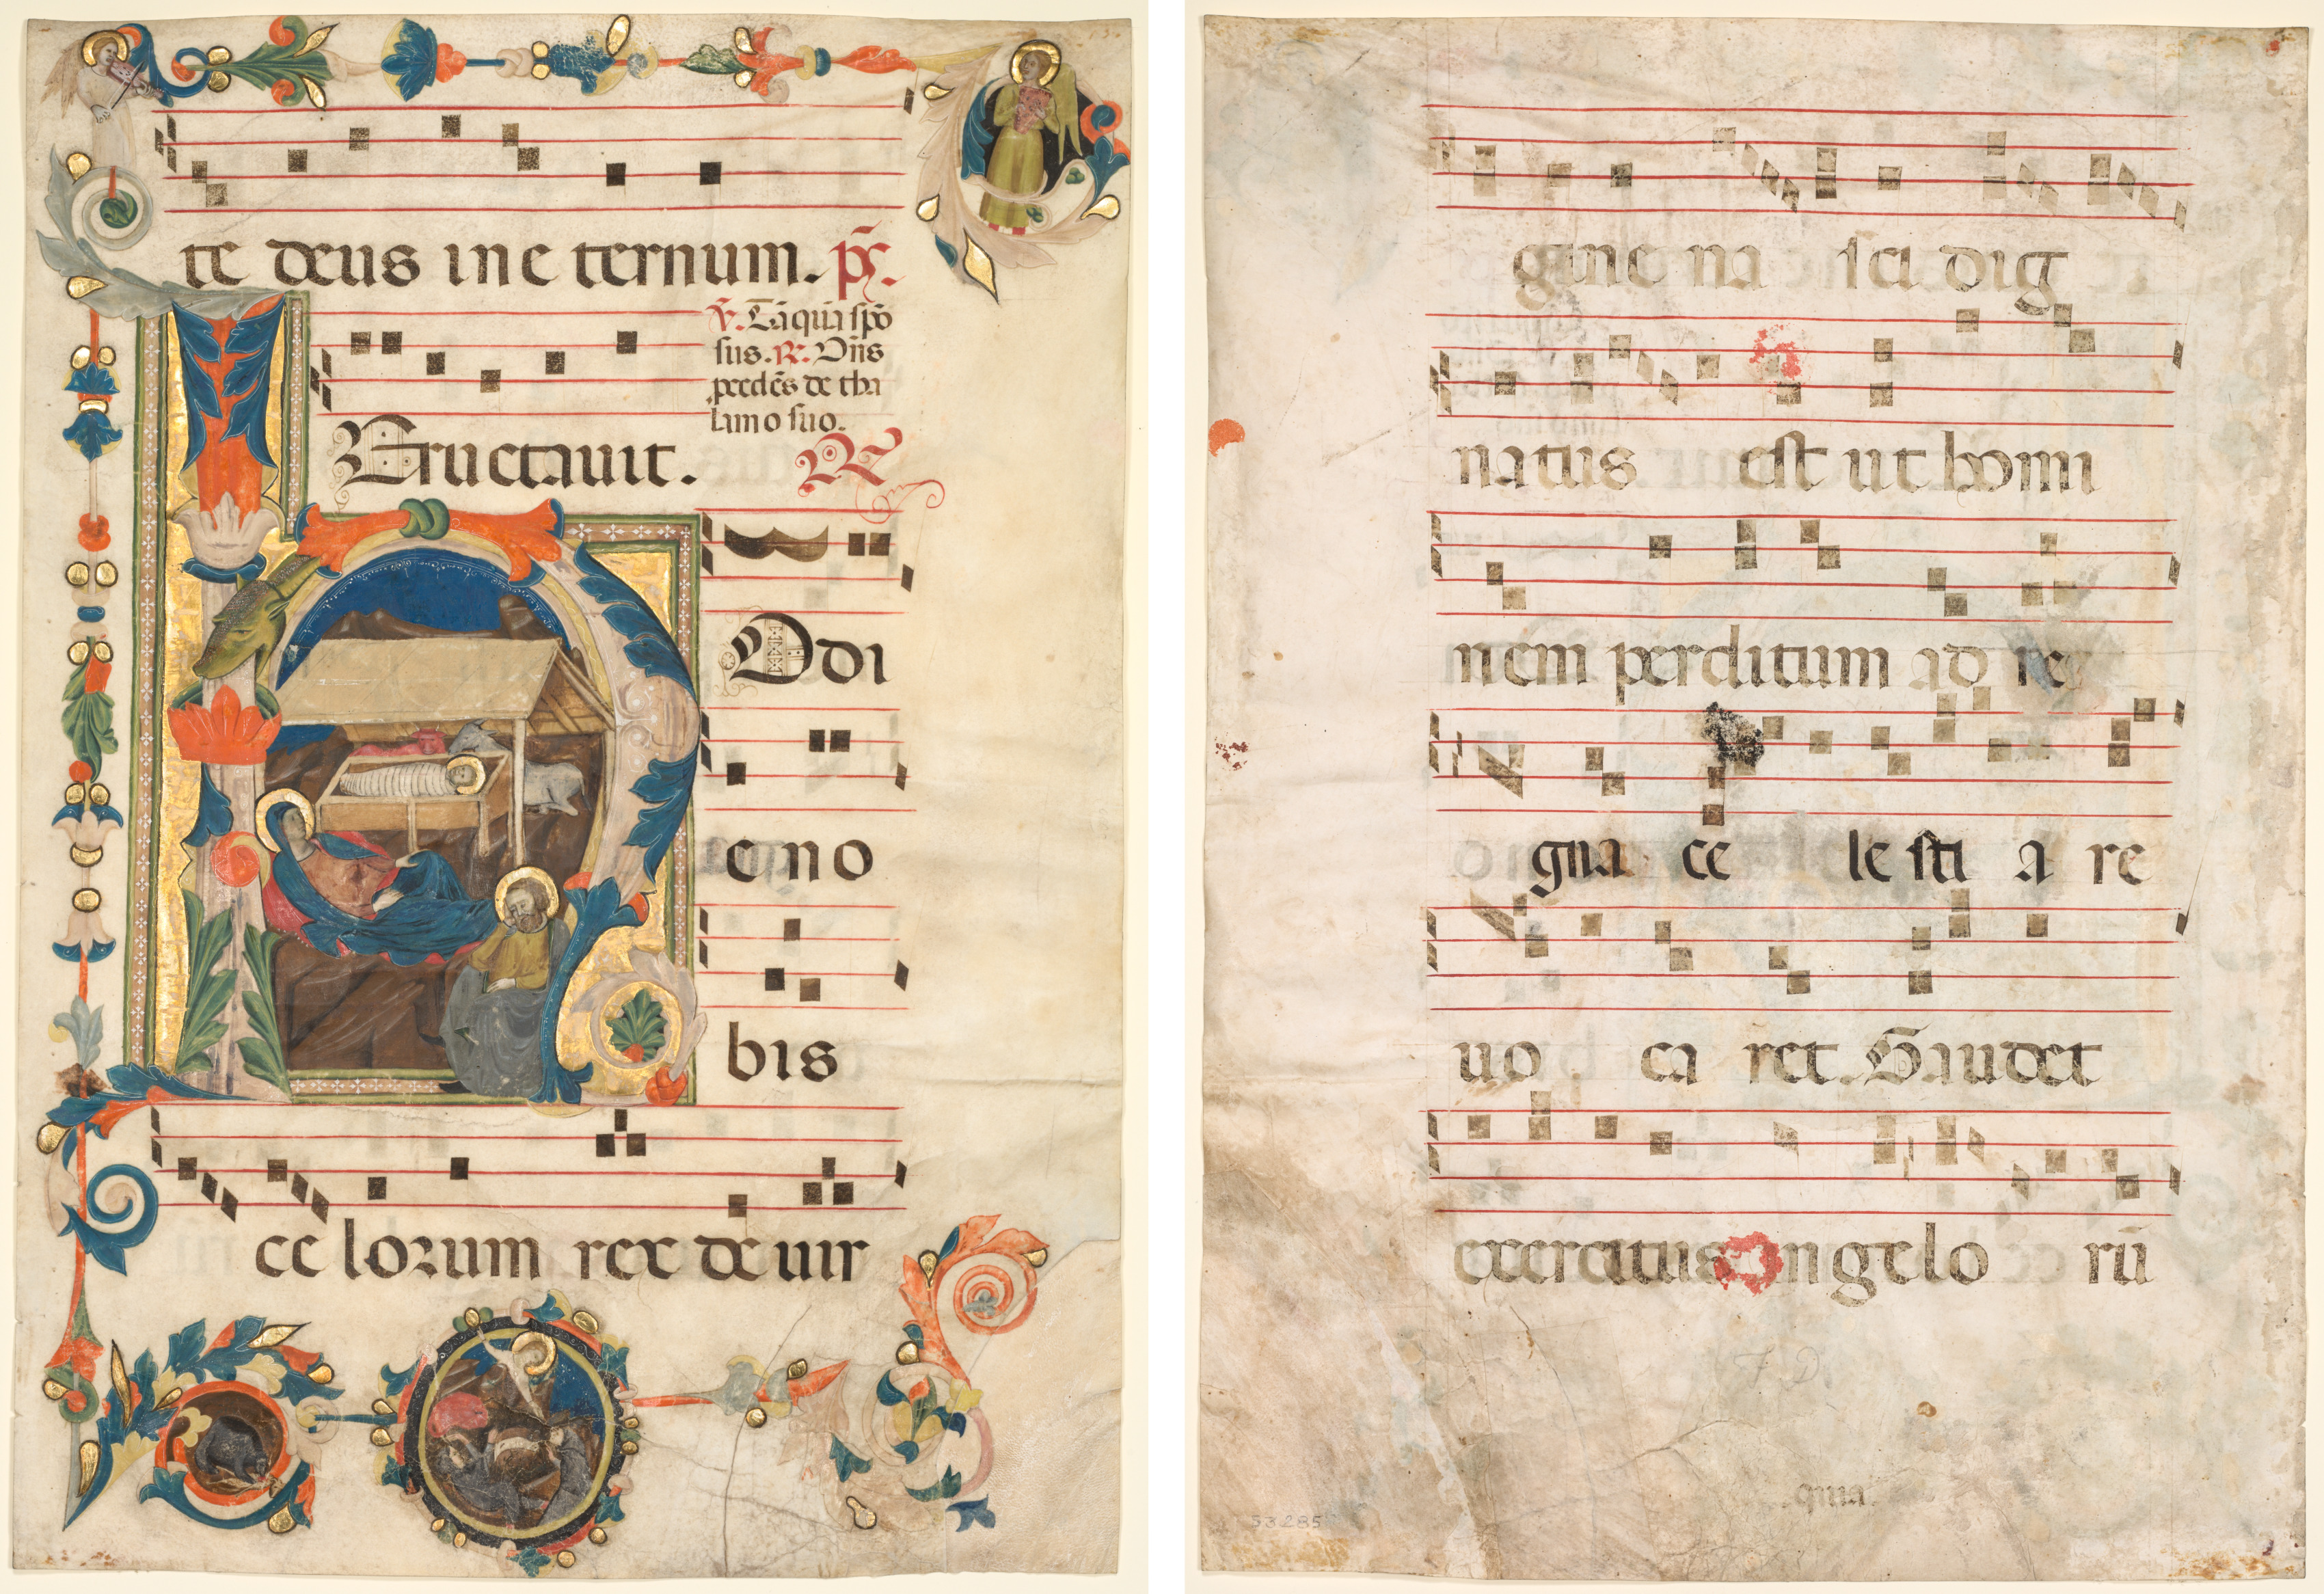 te deus in e ternum. ps.
v. Tāquā spō
sus. R. Dn̄s
p̄cedēs de tha
lamo suo.
Eructauit. R
H Odi
e no
bis
ce lorum rex de uir
gine na sci dig
natus est ut homi
nem perditum ad re
gna ce le sti a re
uo ca ret. Gaudet
exercitus angelo rū
F D
quia
53285